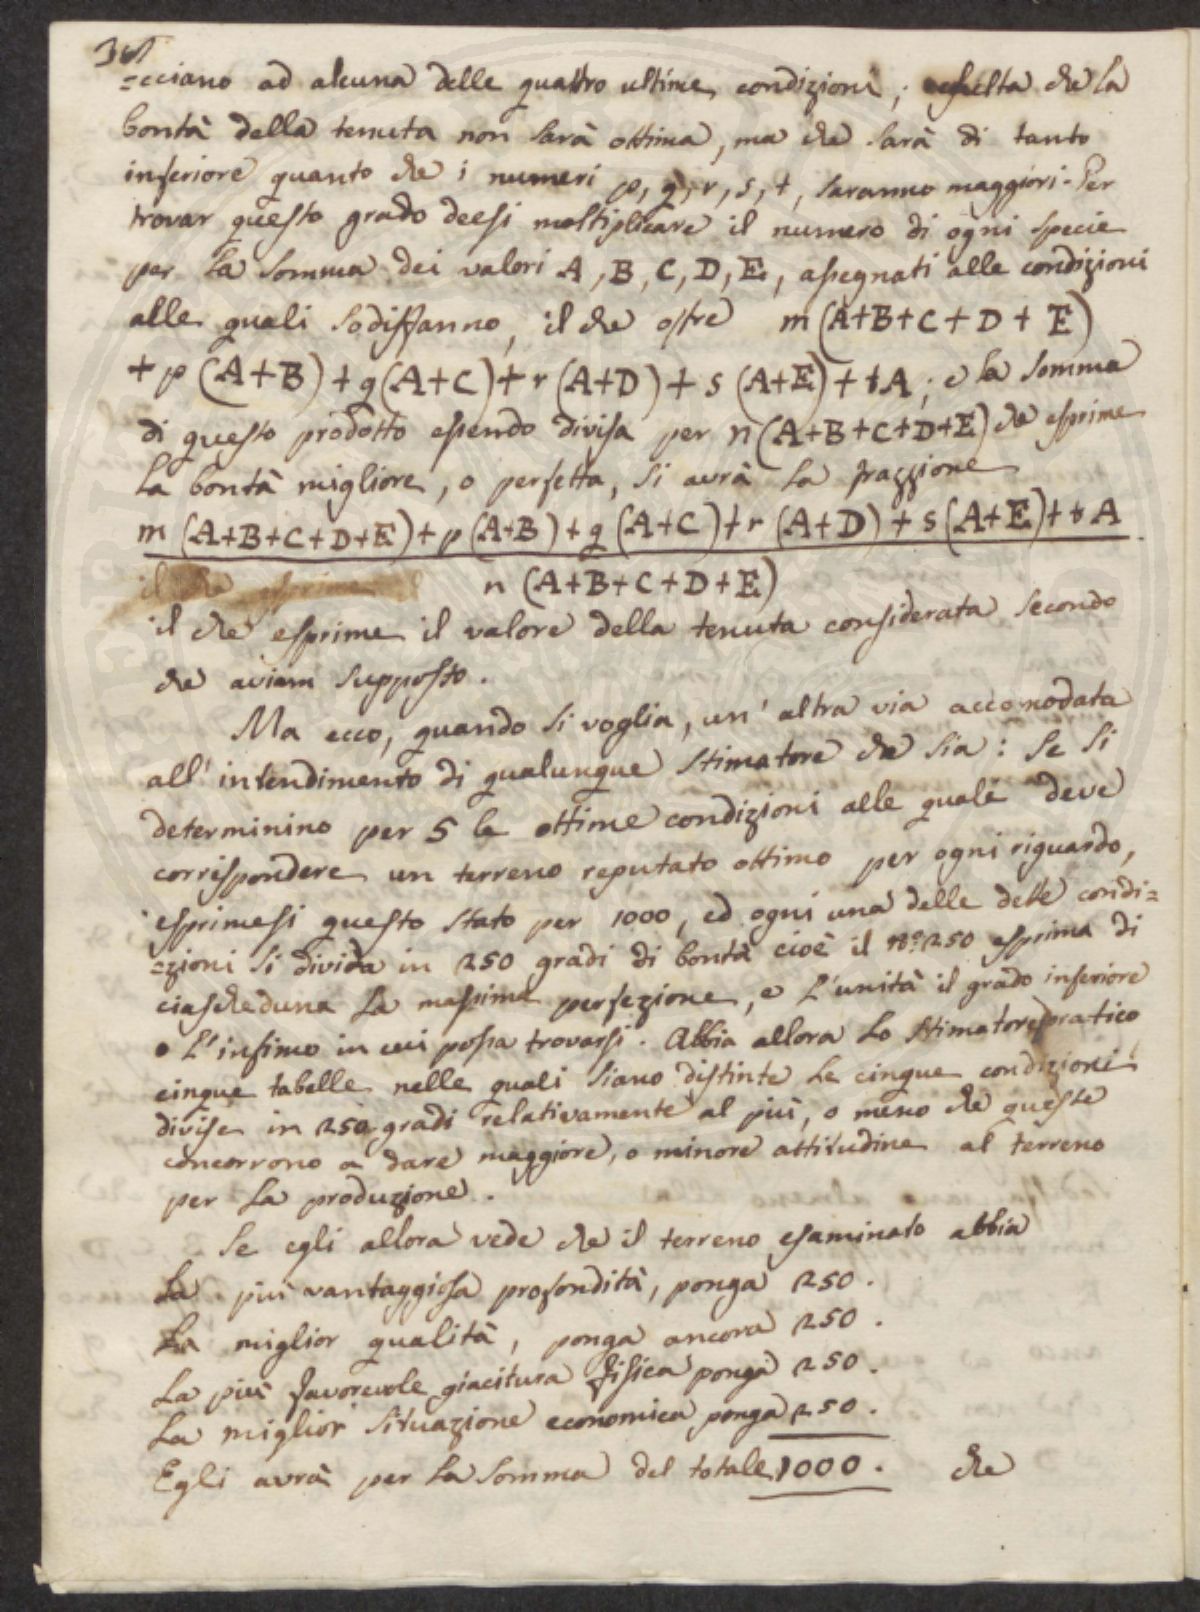 =cciano ad alcuna delle quattro ultime condizioni; risulta che la
bontà della tenuta non sarà ottima, ma che sarà di tanto
inferiore quanto che i numeri p, q, r, s, t, saranno maggiori. Per
trovar questo grado deesi moltiplicare il numero di ogni specie
per la somma dei valori A, B, C, D, E, assegnati alle condizioni
alle quali sodisfanno, il che offre m(A+B+C+D+E)
+p(A+B)+q(A+C)+r(A+D)+s(A+E)+tA; e la somma
di questo prodotto essendo divisa per n(A+B+C+D+E) che esprime
la bontà migliore, o perfetta, si avrà la frazzione
m(A+B+C+D+E)+p(A+B)+q(A+C)+r(A+D)+s(A+E)+tA.
n(A+B+C+D+E)
il che esprime il
il che esprime il valore della tenuta considerata secondo
che aviam supposto.
Ma ecco, quando si voglia, un' altra via accomodata
all' intendimento di qualunque stimatore che sia: Se si
determinino per 5 le ottime condizioni alle quale deve
corrispondere un terreno reputato ottimo per ogni riguardo,
esprimesi questo stato per 1000, ed ogni una delle dette condi=
=zioni si divida in 250 gradi di bontà cioè il n.º 250 esprima di
ciascheduna la massima perfezione, e l'unità il grado inferiore
o l'infimo in cui possa trovarsi. Abbia allora lo stimatore pratico
cinque tabelle nelle quali siano distinte le cinque condizioni
divise in 250 gradi relativamente al più, o meno che queste
concorrono a dare maggiore, o minore attitudine al terreno
per la produzione.
Se egli allora vede che il terreno esaminato abbia
La più vantaggiosa profondità, ponga 250.
La miglior qualità, ponga ancora 250.
La più favorevole giacitura fisica ponga 250.
La miglior situazione economica ponga 250.
Egli avrà per la somma del totale 1000. che